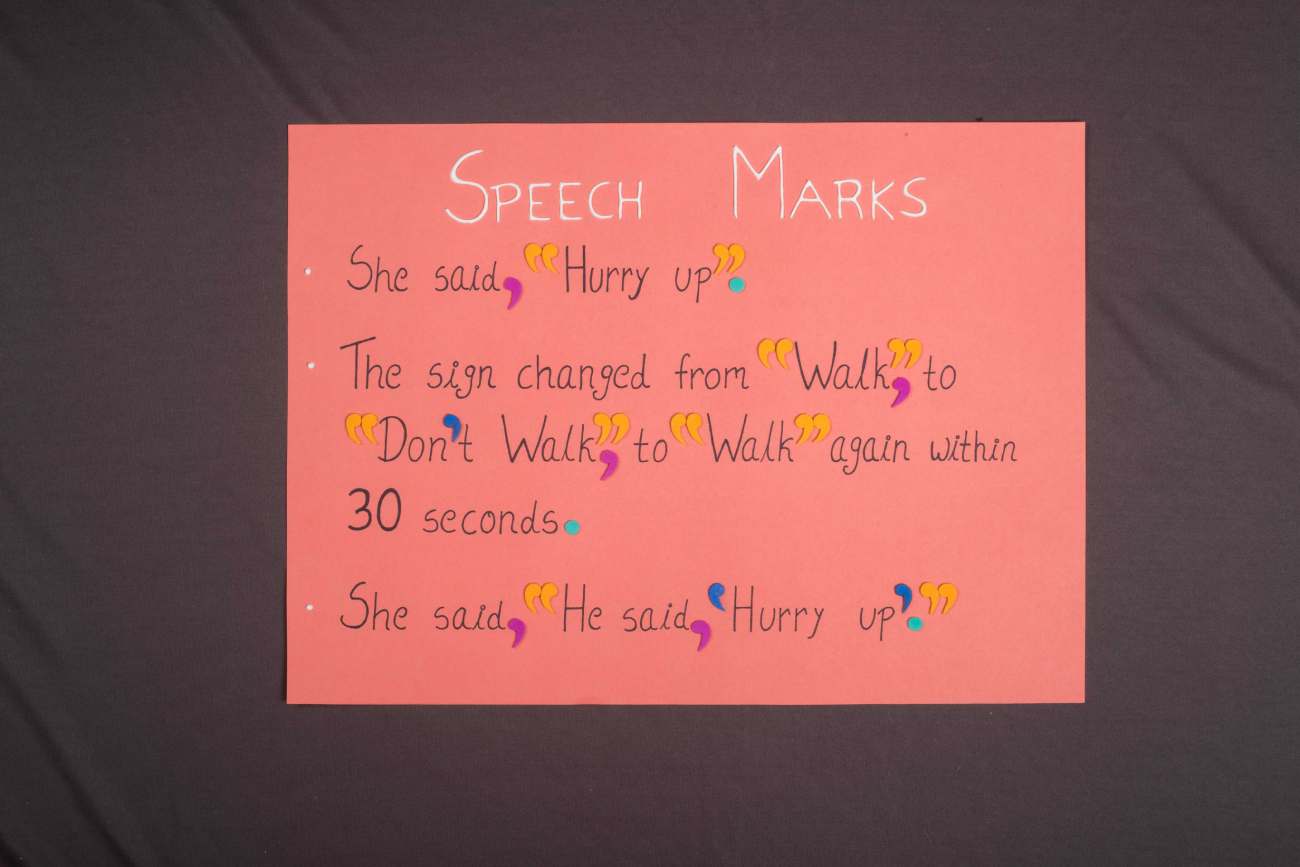 SPEECH MARKS
She said, “Hurry up”.
The sign changed from “Walk”, to
“Don’t Walk”, to “Walk” again within
30 seconds.
She said, “He said, ‘Hurry up’.”